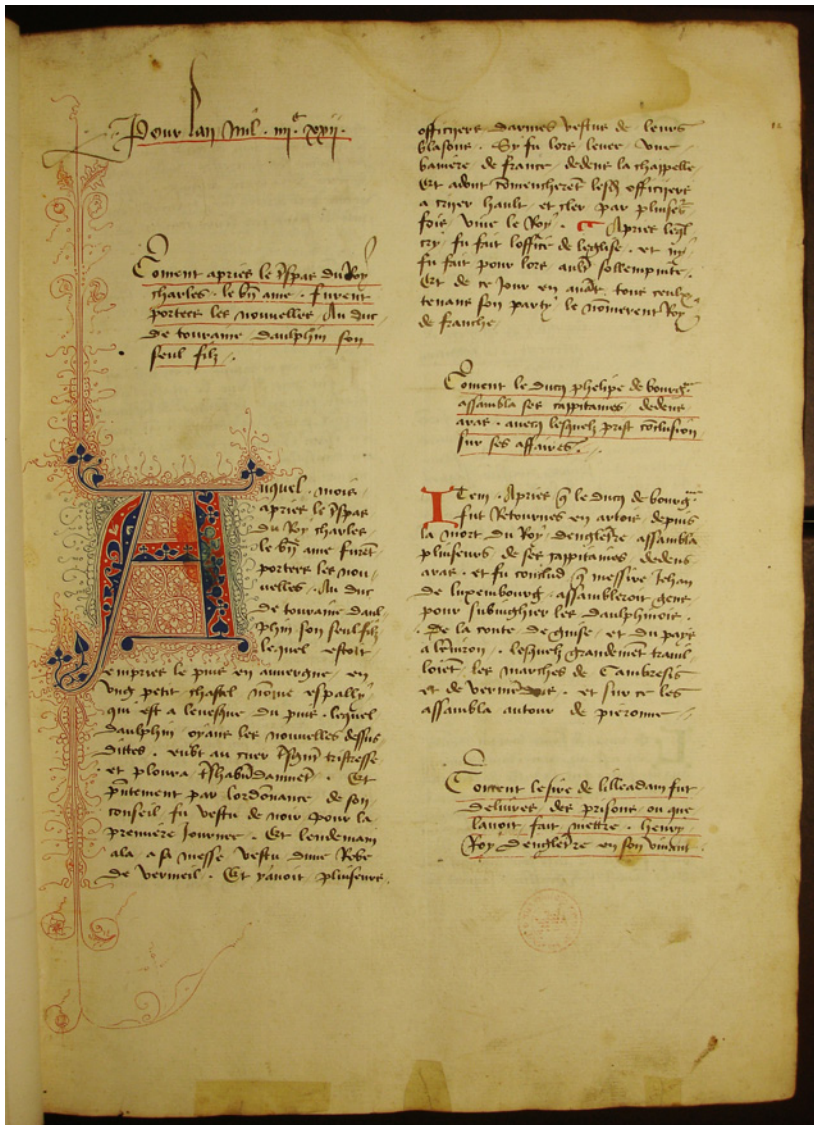 Pour lan mil. iiijc xxij.
Coment apries le tspas du Roy
charles. le bn ame. furent
portees les nouvelles. Au duc
de touraine daulphin son
seul filz.
Auquel. mois.
apries le tspas
du Roy charles
le bn ame furet
portees les nou
uelles. Au duc
de touraine daul
phin son seul filz
lequel estoit
empries le puis en auuergne. en
ung petit chastel nome espally
qui est a leuesque du puis. lequel
daulphin oyant les nouuelles dessus
dittes. eubt au cuer tsgnt tristresse
et ploura tshabundament. Et
pntement par lordonance de son
conseil. fu vestu de noir pour la
premiere Journee. Et lendemain
ala a sa messe vestu dune Robe
de vermeil. Et yauoit pluiseurs
officyers darmes vestus de leurs
blasons. Sy fu lors leuee vne
baniere de france. dedens la chappelle
Et adont comencheret lesd officyers
a cryer hault. et cler par pluises
fois. viue le Roy. Apries leql
cry. fu fait loffice de leglise. et
fu fait pour lors. sollempnite.
Et de ce Jour en auat. tous ceulx
tenans son party le nomerent Roy
de franche
Coment le ducq phelipe de bourg.
assambla ses cappitaines. dedens
aras. auecq lesquelz prist coclusion
sur ses affaires.
Item. Apries q le ducq de bourg.
fut Retournes en artois. depuis
la mort du Roy dengletre. assambla
pluiseurs de ses cappitaines dedens
aras. et fu conclud q messire Jehan
de luxembourg. assambleroit gens
pour subiughier les daulphinois.
de la conte de guise. et du pays
a lenuiron. lesquelz grandemet trauil
loiet. les marches de Cambresis
et de vermendois. et sur ce les
assambla autour de pieronne
Coment le sire de lilleadam fut
deliures. des prisons. ou que
lauoit fait mettre. henry
Roy dengletre en son viuant.